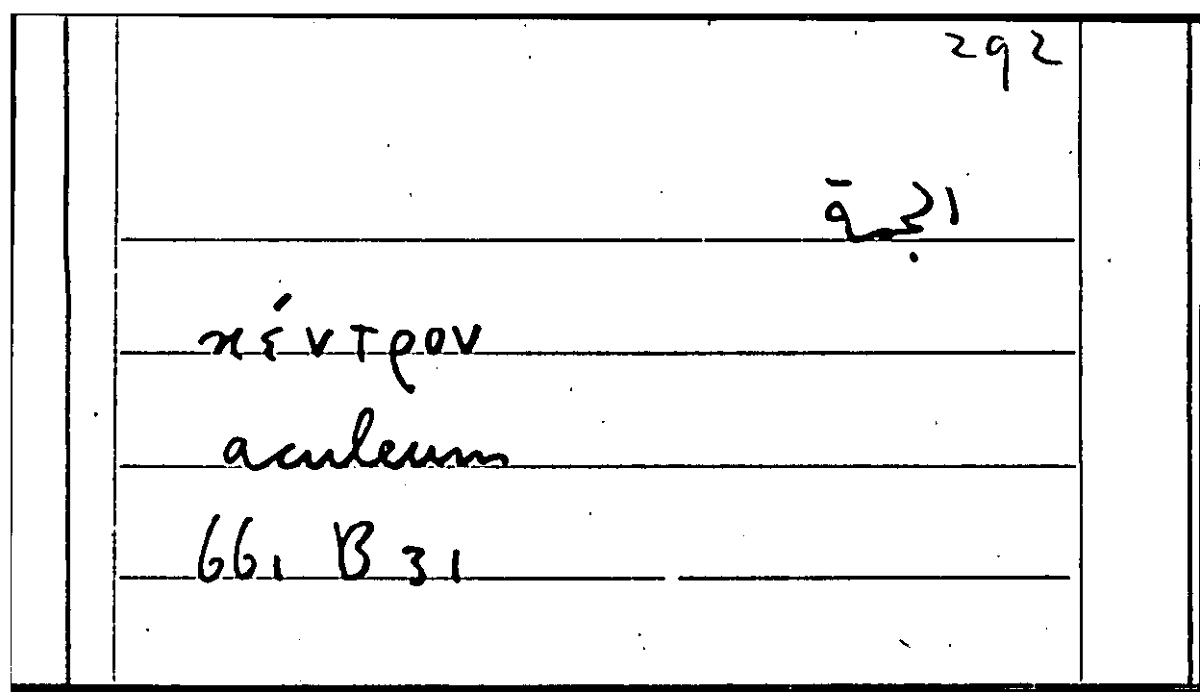 292
κέντρον
aculeum
661 B 31